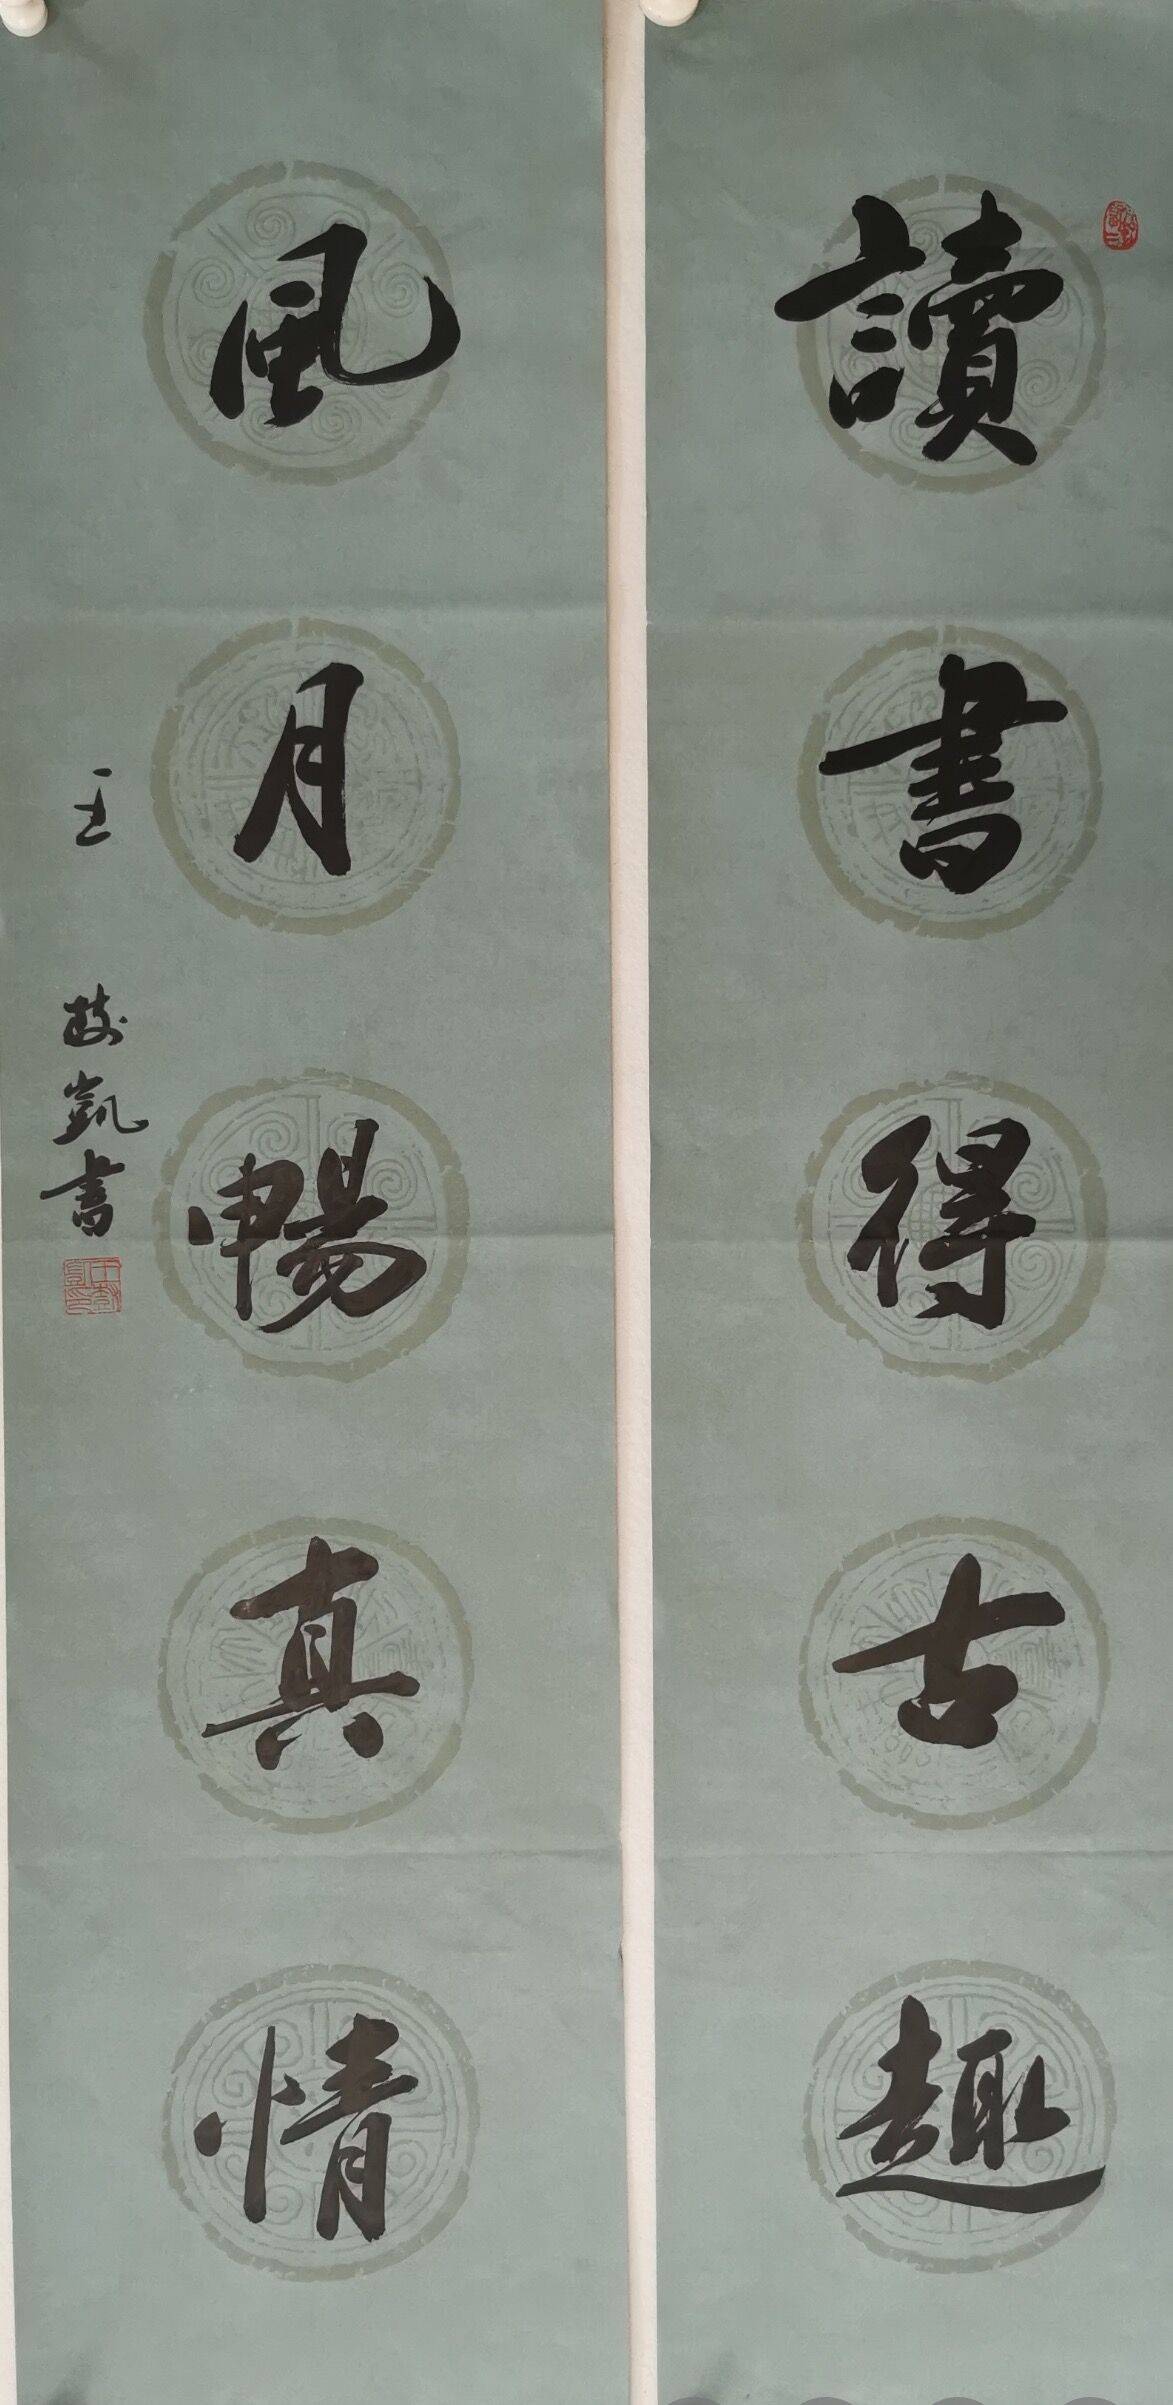 讀書得古趣
風月暢真情
王
凱書